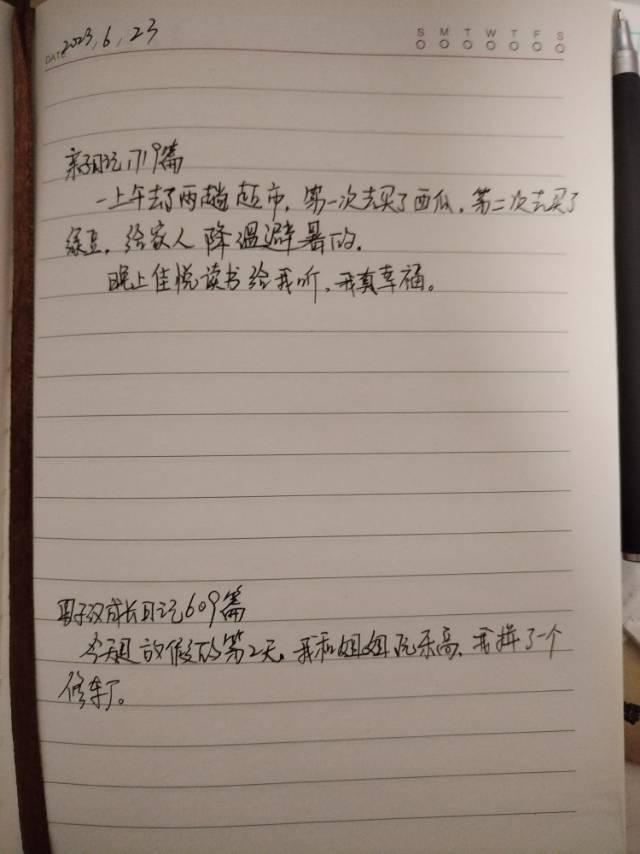 DATE 2023.6.23
S M T W T F S
亲子日记1719篇
一上午去了两趟超市，第一次去买了西瓜，第二次去买了
绿豆，给家人降温避暑的。
晚上佳悦读书给我听，我真幸福。
成长日记609篇
今天是放假的第2天，我和姐姐玩乐高，我拼了一个
修车厂。